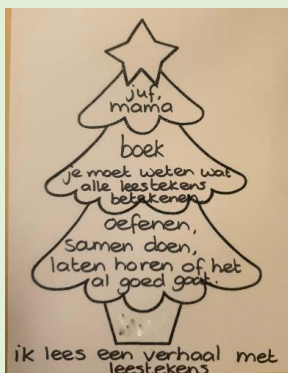 juf,
mama
boek
je moet weten wat
alle leestekens
betekenen
oefenen,
samen doen,
laten horen of het
al goed gaat.
ik lees een verhaal met
leestekens